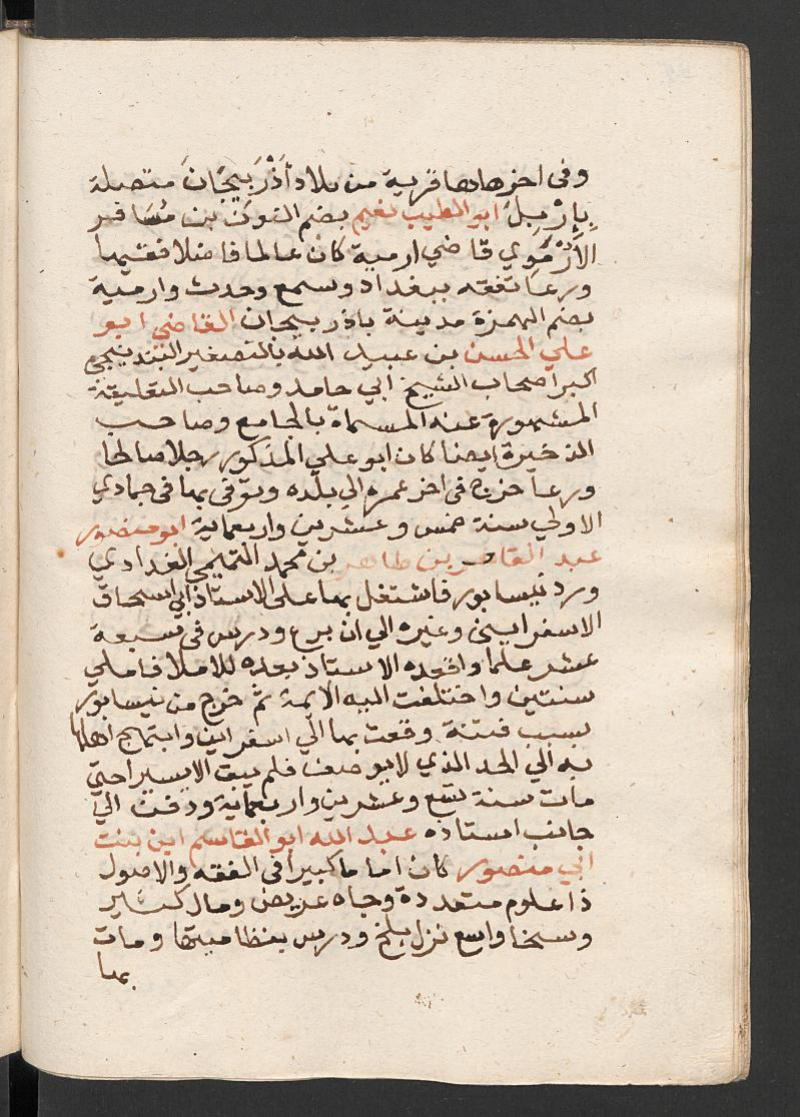 وفى اخرها دها قرية من بلاد أَذْرَبيجَانَ متصلة
بإرْبِلَ ابو الطيب نعيم بضم النون بن مُسَافر
الأُرْمَوي قاضي ارمية كان عالما فاضلا فقيها
ورعا تفقه ببغداد وسمع وحدث وارمية
بضم الهمزة مدينة باذربيجان القاضي ابو
علي الحسن بن عبيد الله بالتصغير البندنيجى
اكبر اصحاب الشيخ ابي حامد وصاحب التعليقة
المشهورة عنه المسماة بالجامع وصاحب
الذخيرة ايضا كان ابو علي المذكور رجلا صالحا
ورعا خرج فى اخر عمره الي بلده وتوفى بها فى جمادي
الاولي سنة خمس وعشرين واربعماية ابو منصور
عبد القاهر بن طاهر بن محمد التميمي البغدادي
ورد نيسابور فاشتغل بها على الاستاذ ابي اسحاق
الاسفراينى وغيره الي ان برع ودرس فى سبعة
عشر علما واقعده الاستاذ بعده للاملا فاملي
سنتين واختلفت اليه الايمة ثم خرج من نيسابور
بسبب فتنة وقعت بها الي اسفراين وابتهج اهلها
به الي الحد الذي لا يوصف فلم يبق الا يسيرا حتى
مات سنة تسع وعشرين واربعماية ودفن الي
جانب استاذه عبد الله ابو القاسم ابن بنت
ابي منصور كان اماما كبيرا فى الفقه والاصول
ذا علوم متعددة وجاه عريض ومال كثير
وسخا واسع نزل بلخ ودرس بنظاميتها ومات
بها